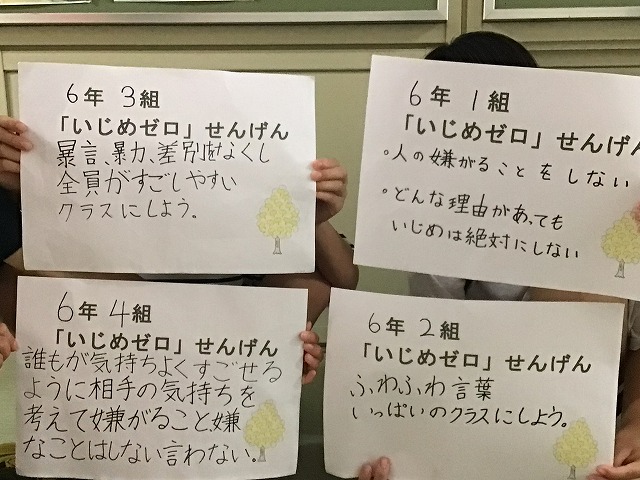 6年 3組
「いじめゼロ」せんげん
暴言、暴力、差別をなくし
全員がすごしやすい
クラスにしよう。
6年 1組
「いじめゼロ」せんげん
。人の嫌がることをしない
。どんな理由があっても
いじめは絶対にしない
6年 4組
「いじめゼロ」せんげん
誰もが気持ちよくすごせる
ように相手の気持ちを
考えて嫌がること、嫌
なことはしない言わない。
6年 2組
「いじめゼロ」せんげん
ふわふわ言葉
いっぱいのクラスにしよう。